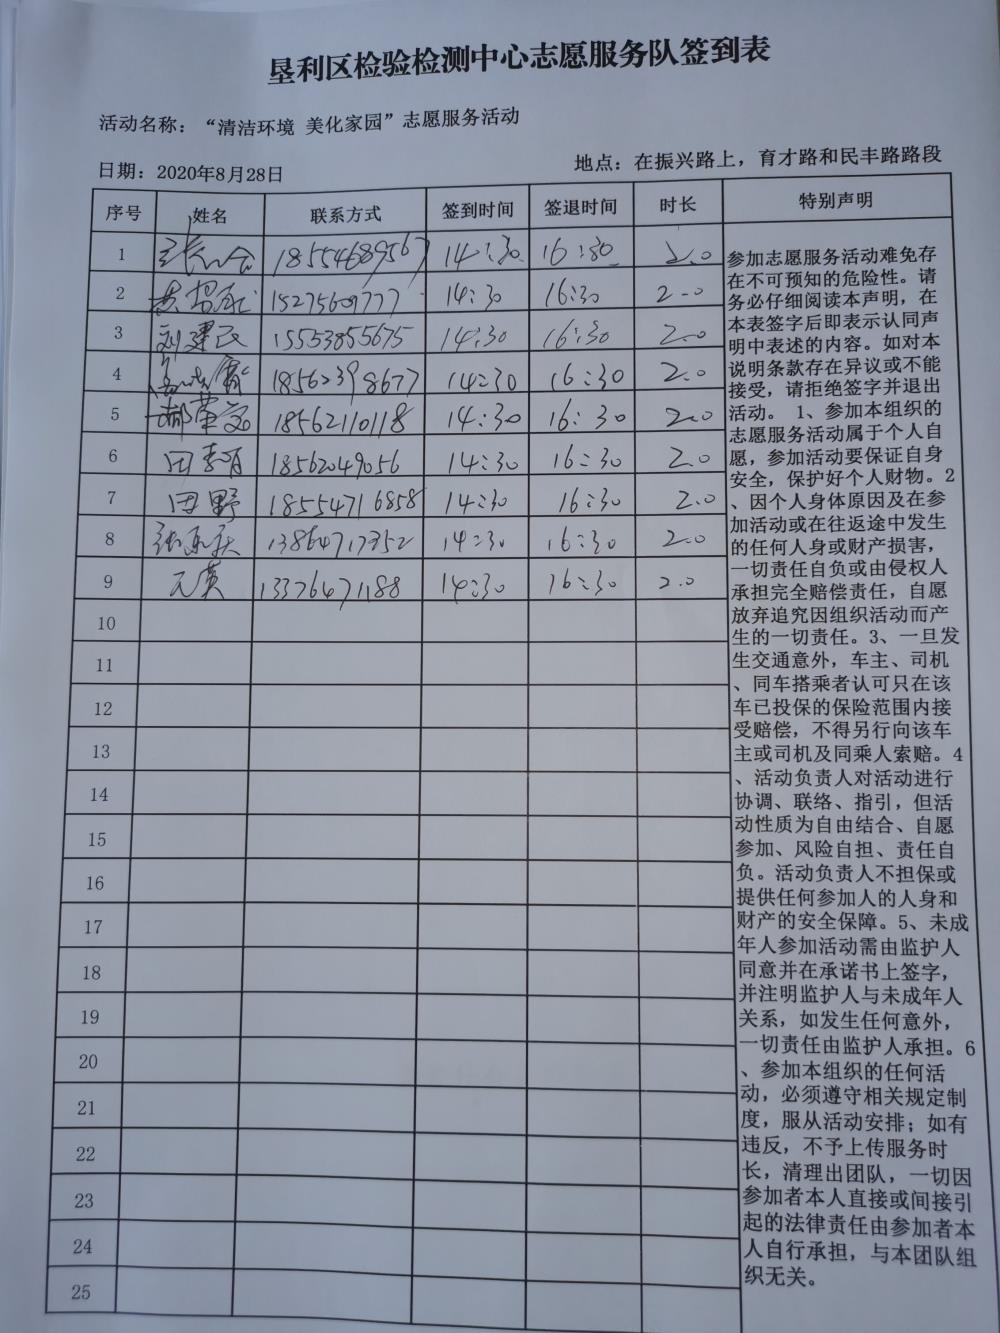 垦利区检验检测中心志愿服务队签到表
活动名称：“清洁环境 美化家园”志愿服务活动
日期：2020年8月28日 地点：在振兴路上，育才路和民丰路路段
序号 姓名 联系方式 签到时间 签退时间 时长 特别声明
1 18554689567 14:30 16:30 2.0
2 15275609777 14:30 16:30 2.0
3 刘建民 15553855675 14:30 16:30 2.0
4 18562398677 14:30 16:30 2.0
5 18562110118 14:30 16:30 2.0
6 田 18562049056 14:30 16:30 2.0
7 田野 18554716858 14:30 16:30 2.0
8 13864717352 14:30 16:30 2.0
9 13376471188 14:30 16:30 2.0
10
11
12
13
14
15
16
17
18
19
20
21
22
23
24
25
参加志愿服务活动难免存
在不可预知的危险性。请
务必仔细阅读本声明，在
本表签字后即表示认同声
明中表述的内容。如对本
说明条款存在异议或不能
接受，请拒绝签字并退出
活动。 1、参加本组织的
志愿服务活动属于个人自
愿，参加活动要保证自身
安全，保护好个人财物。2
、因个人身体原因及在参
加活动或在往返途中发生
的任何人身或财产损害，
一切责任自负或由侵权人
承担完全赔偿责任，自愿
放弃追究因组织活动而产
生的一切责任。3、一旦发
生交通意外，车主、司机
、同车搭乘者认可只在该
车已投保的保险范围内接
受赔偿，不得另行向该车
主或司机及同乘人索赔。4
、活动负责人对活动进行
协调、联络、指引，但活
动性质为自由结合、自愿
参加、风险自担、责任自
负。活动负责人不担保或
提供任何参加人的人身和
财产的安全保障。5、未成
年人参加活动需由监护人
同意并在承诺书上签字，
并注明监护人与未成年人
关系，如发生任何意外，
一切责任由监护人承担。6
、参加本组织的任何活
动，必须遵守相关规定制
度，服从活动安排；如有
违反，不予上传服务时
长，清理出团队，一切因
参加者本人直接或间接引
起的法律责任由参加者本
人自行承担，与本团队组
织无关。